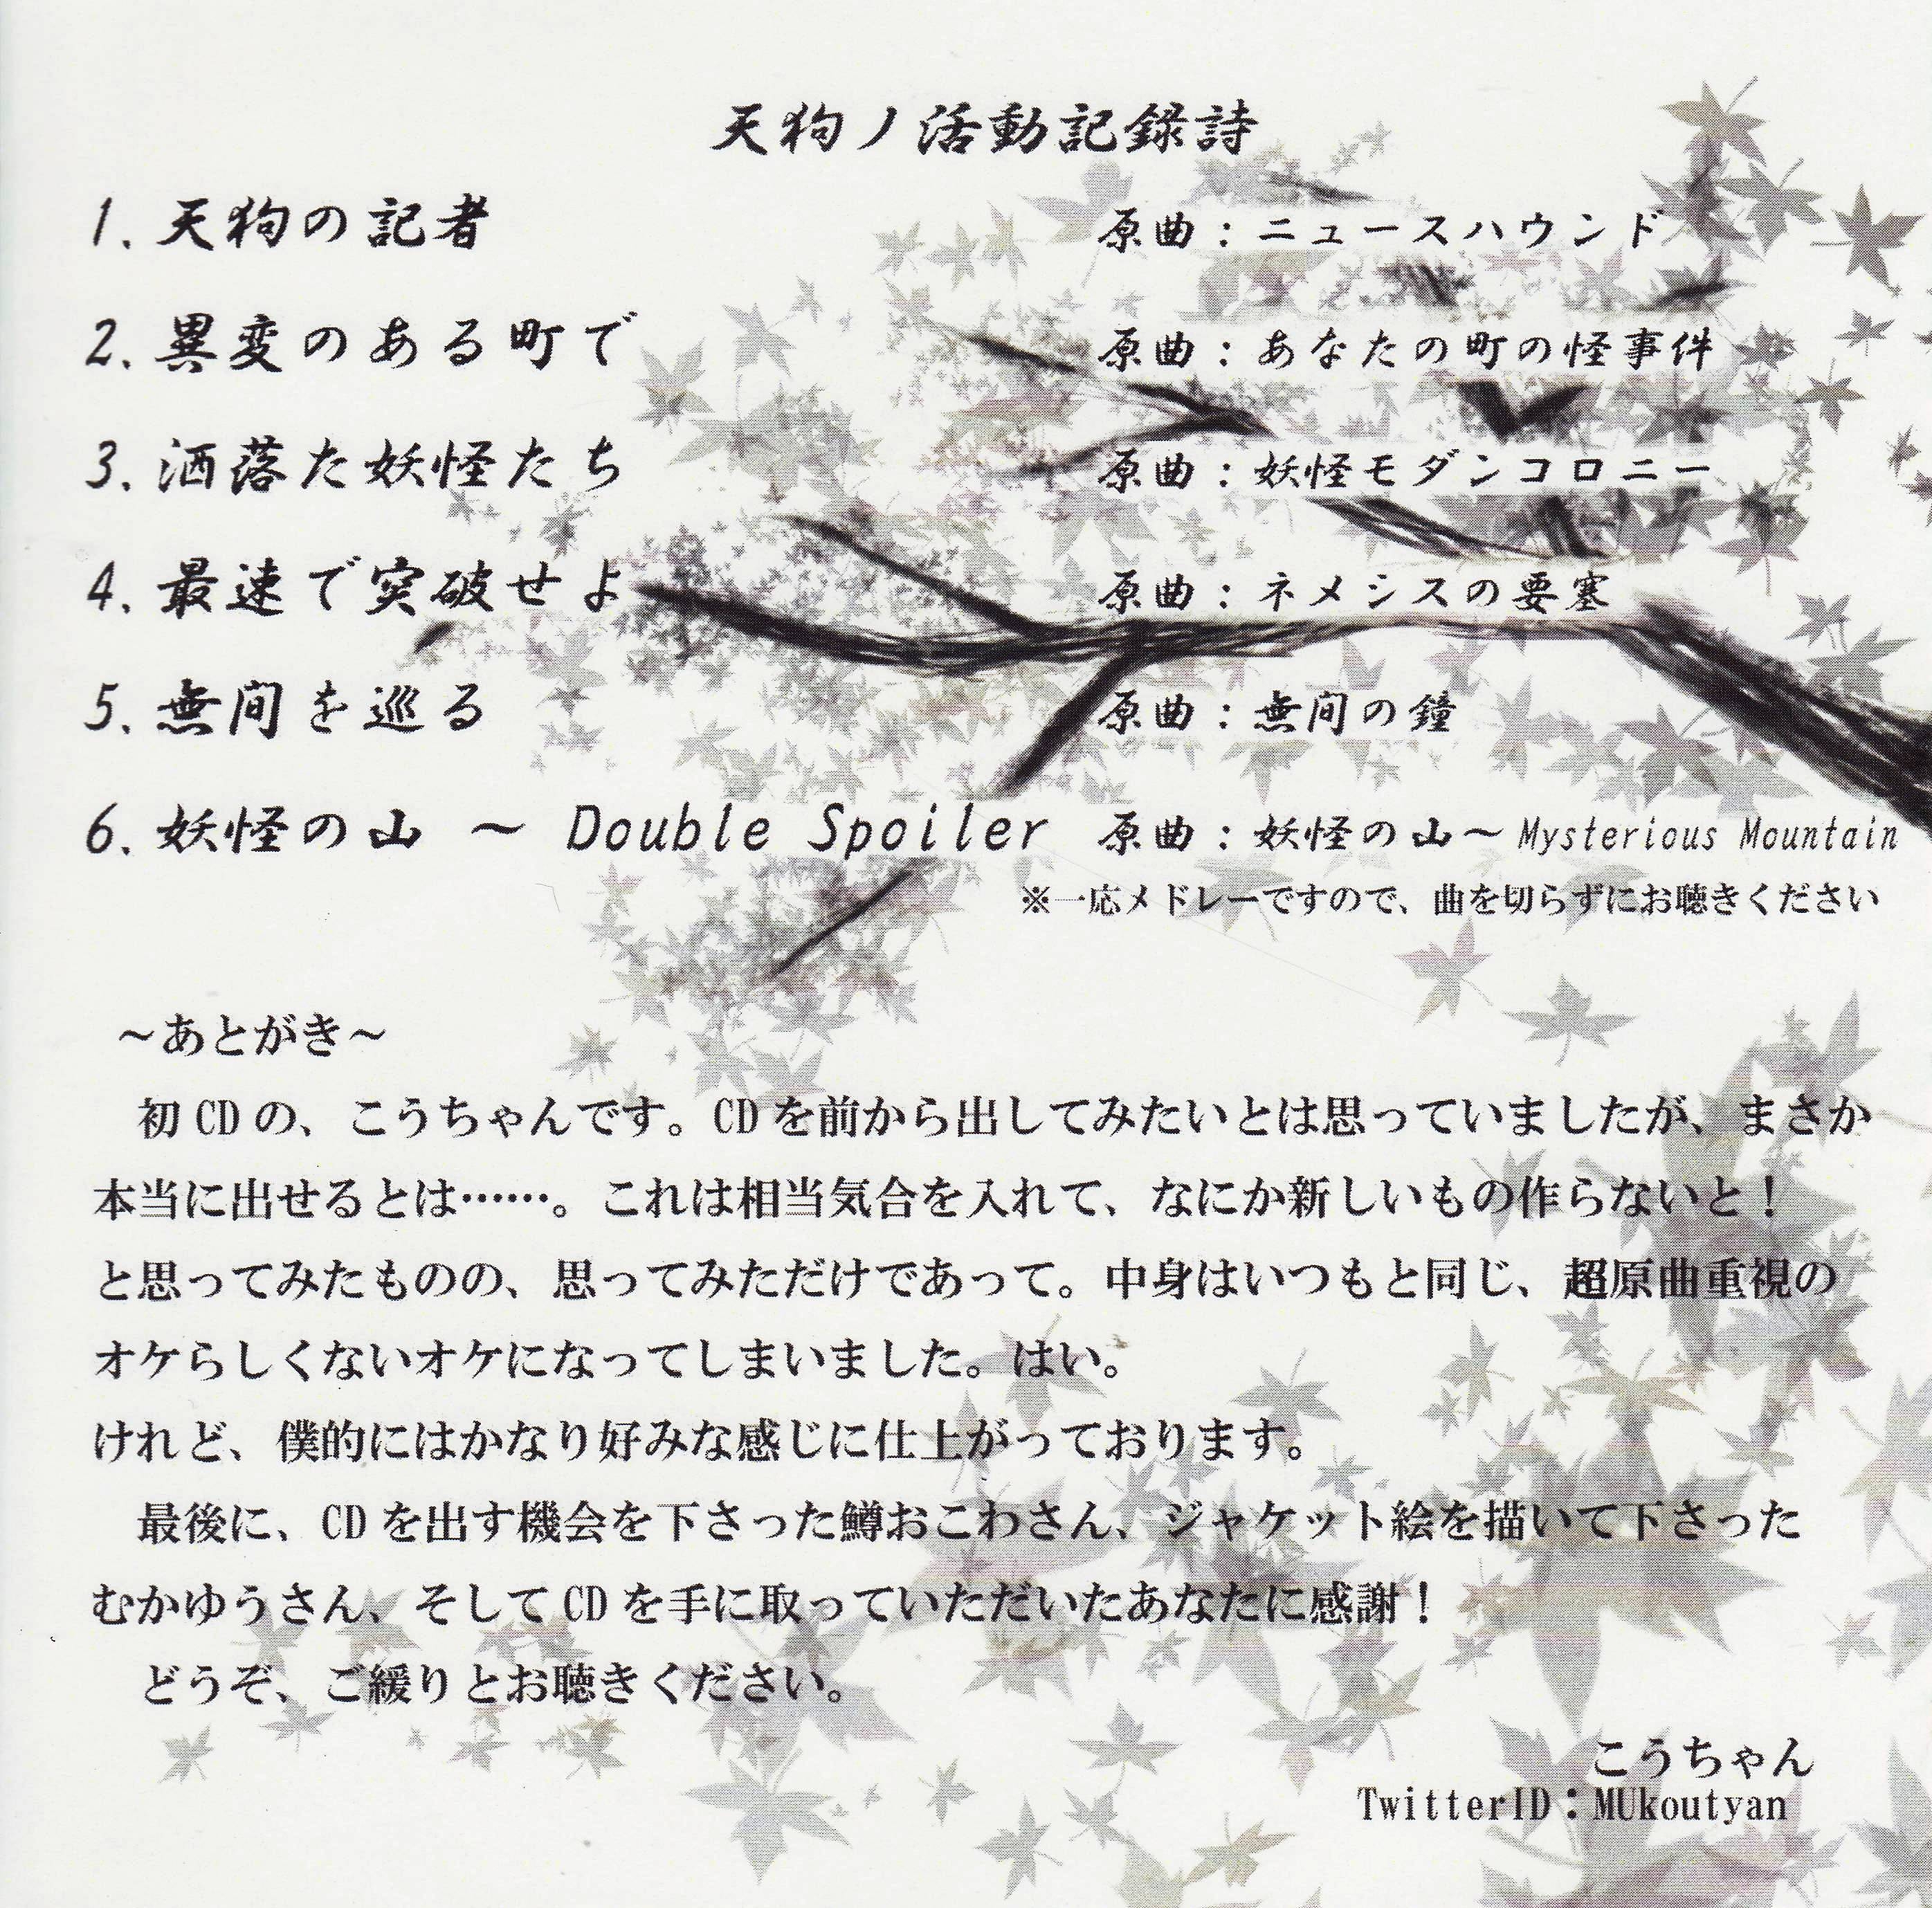 天狗ノ活動記録詩
1. 天狗の記者 原曲：ニュースハウンド
2. 異変のある町で 原曲：あなたの町の怪事件
3. 洒落た妖怪たち 原曲：妖怪モダンコロニー
4. 最速で突破せよ 原曲：ネメシスの要塞
5. 無間を巡る 原曲：無間の鐘
6. 妖怪の山 ～ Double Spoiler 原曲：妖怪の山～Mysterious Mountain
※一応メドレーですので、曲を切らずにお聴きください
～あとがき～
初CDの、こうちゃんです。CDを前から出してみたいとは思っていましたが、まさか
本当に出せるとは……。これは相当気合を入れて、なにか新しいもの作らないと！
と思ってみたものの、思ってみただけであって。中身はいつもと同じ、超原曲重視の
オケらしくないオケになってしまいました。はい。
けれど、僕的にはかなり好みな感じに仕上がっております。
最後に、CDを出す機会を下さった鱒おこわさん、ジャケット絵を描いて下さった
むかゆうさん、そしてCDを手に取っていただいたあなたに感謝！
どうぞ、ご緩りとお聴きください。
こうちゃん
TwitterID：MUkoutyan